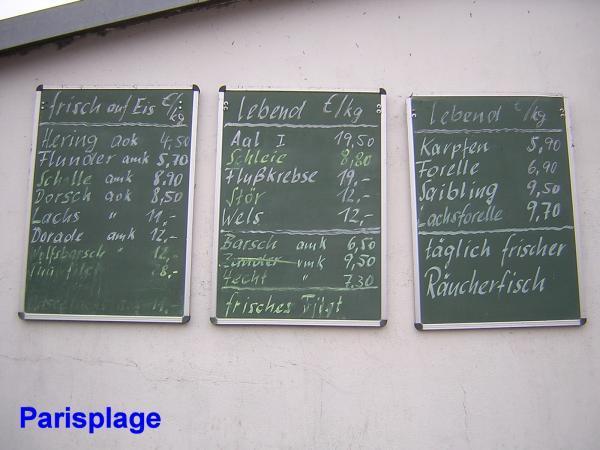 frisch auf Eis €/kg
Hering aok 4,50
Flunder amk 5,70
Scholle amk 8,90
Dorsch aok 8,50
Lachs " 11,-
Dorade amk 12,-
Wolfsbarsch " 12,-
8,-
Lebend €/kg
Aal I 19,50
Schleie 8,80
Flußkrebse 19,-
Stör 12,-
Wels 12,-
Barsch amk 6,50
Zander amk 9,50
Hecht " 7.30
frisches
Lebend €/kg
Karpfen 5,90
Forelle 6,90
Saibling 9,50
Lachsforelle 9,70
täglich frischer
Räucherfisch
Parisplage